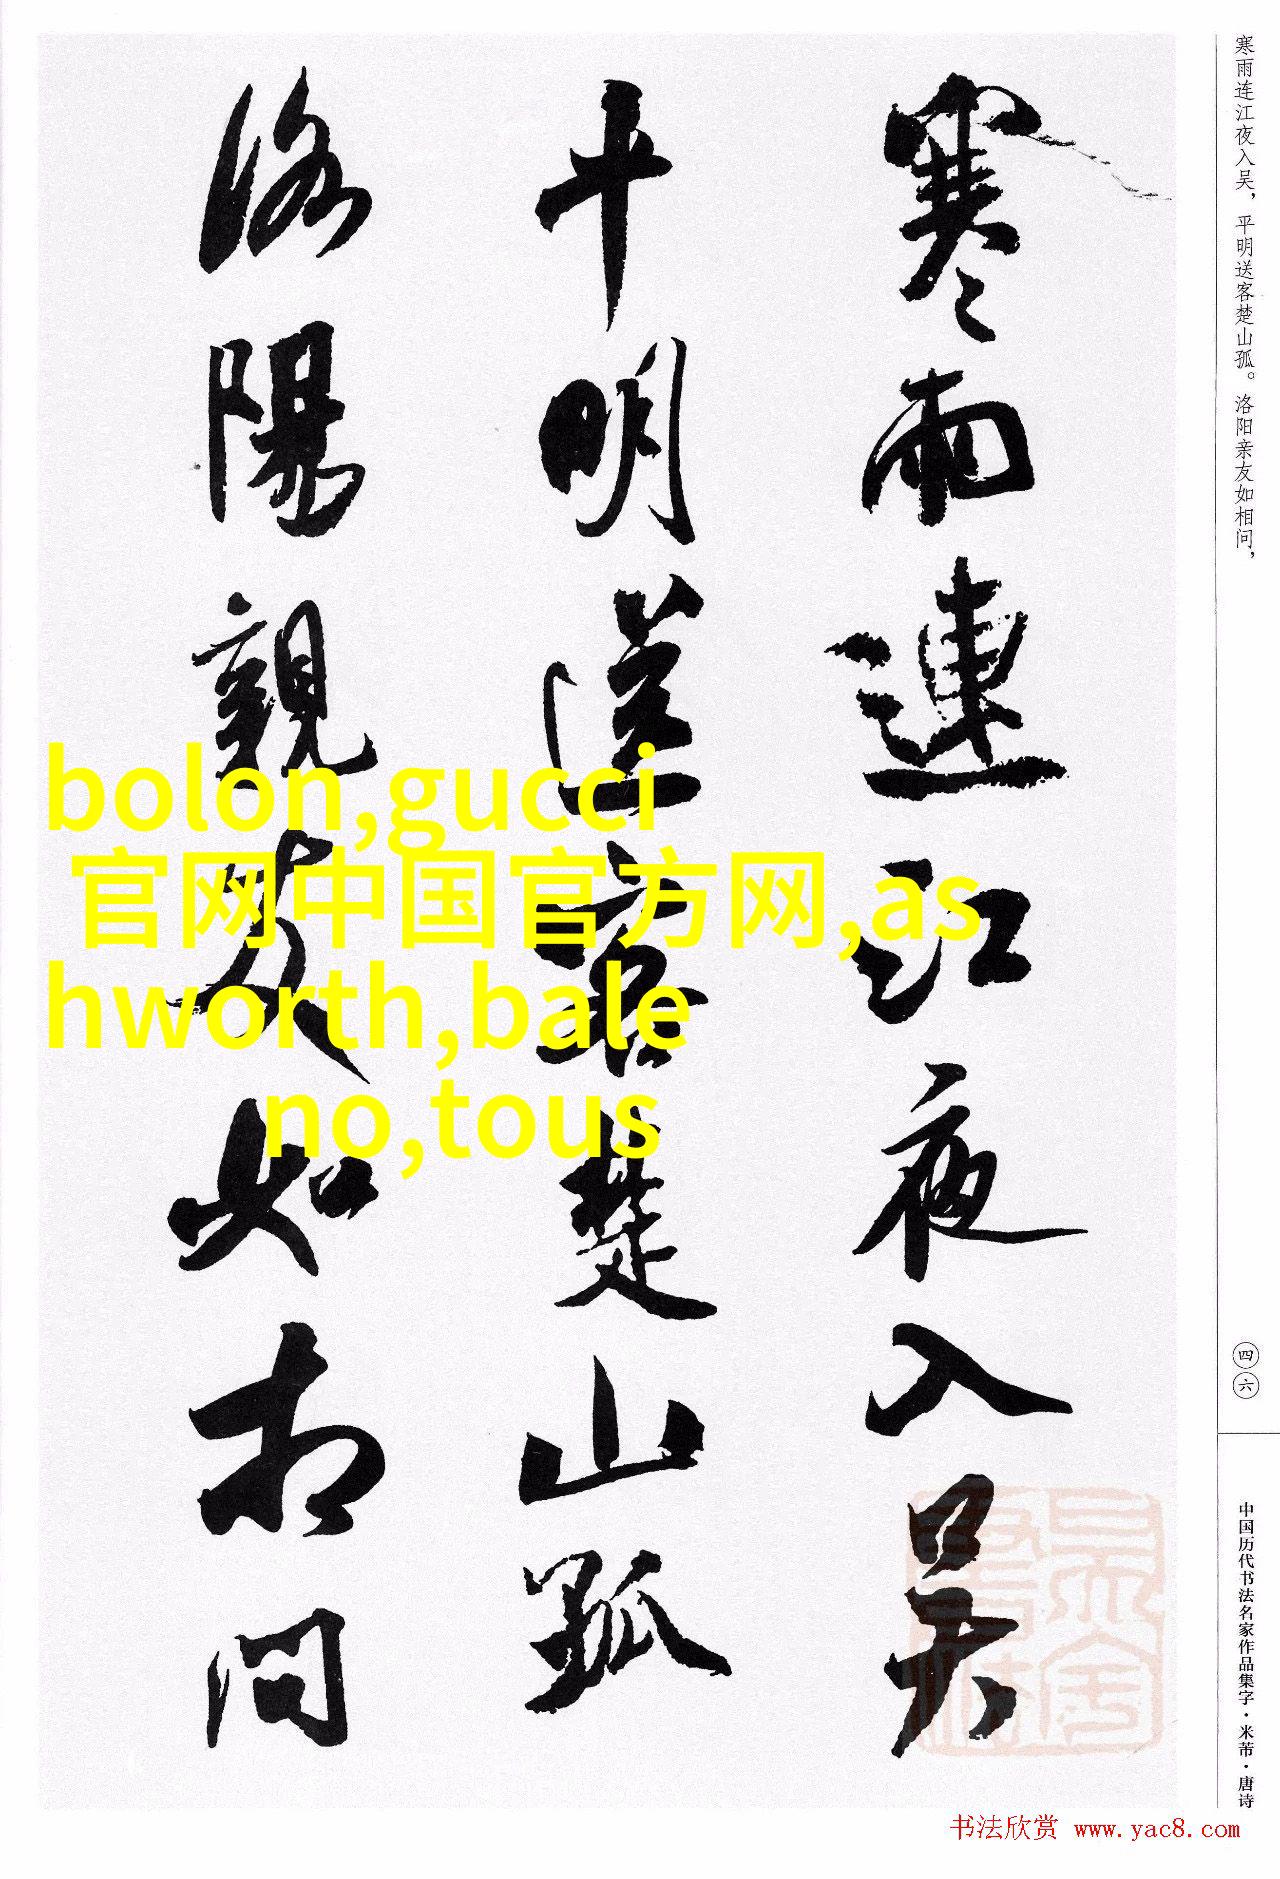 寒雨連江夜入吴
平明送客楚山孤
洛陽親友如相問
寒雨连江夜入吴，平明送客楚山孤。洛阳亲友如相问，
四六
中国历代书法名家作品集字·米芾·唐诗
bolon,gucci
官网中国官方网,as
hworth,bale
no,tous
书法欣赏 www.yac8.com